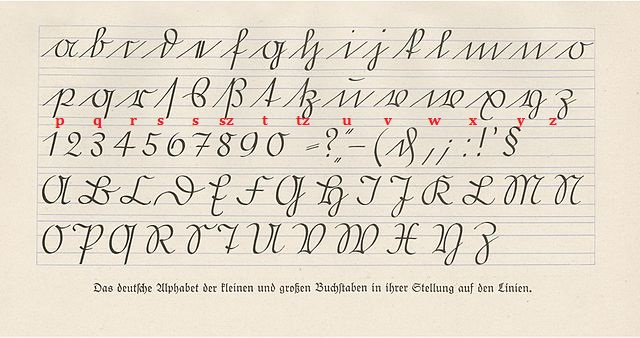 a b c d e f g h i j k l m n o
p q r ſ s ß t tz u v w x y z
p q r s s sz t tz u v w x y z
1 2 3 4 5 6 7 8 9 0 = ? „“ – ( ) , ; : ! ' §
A B C D E F G H I J K L M N
O P Q R S T U V W X Y Z
Das deutſche Alphabet der kleinen und großen Buchſtaben in ihrer Stellung auf den Linien.